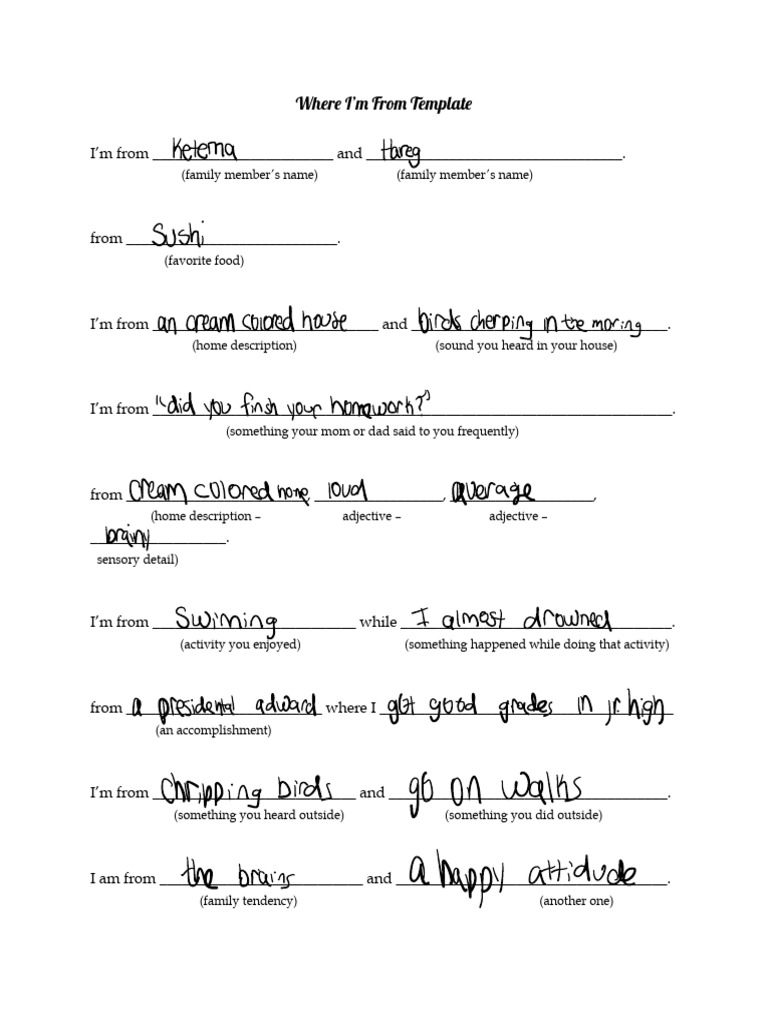 Where I'm From Template
I'm from Ketema and Hareg.
(family member's name) (family member's name)
from Sushi.
(favorite food)
I'm from an cream colored house and birds cherping in the moring.
(home description) (sound you heard in your house)
I'm from "did you finsh your homework?".
(something your mom or dad said to you frequently)
from cream colored home, loud, average,
(home description – adjective – adjective –
brainy.
sensory detail)
I'm from Swiming while I almost drowned.
(activity you enjoyed) (something happened while doing that activity)
from a presidental adward where I got good grades in jr. high
(an accomplishment)
I'm from Chripping birds and go on walks.
(something you heard outside) (something you did outside)
I am from the brains and a happy attidude.
(family tendency) (another one)